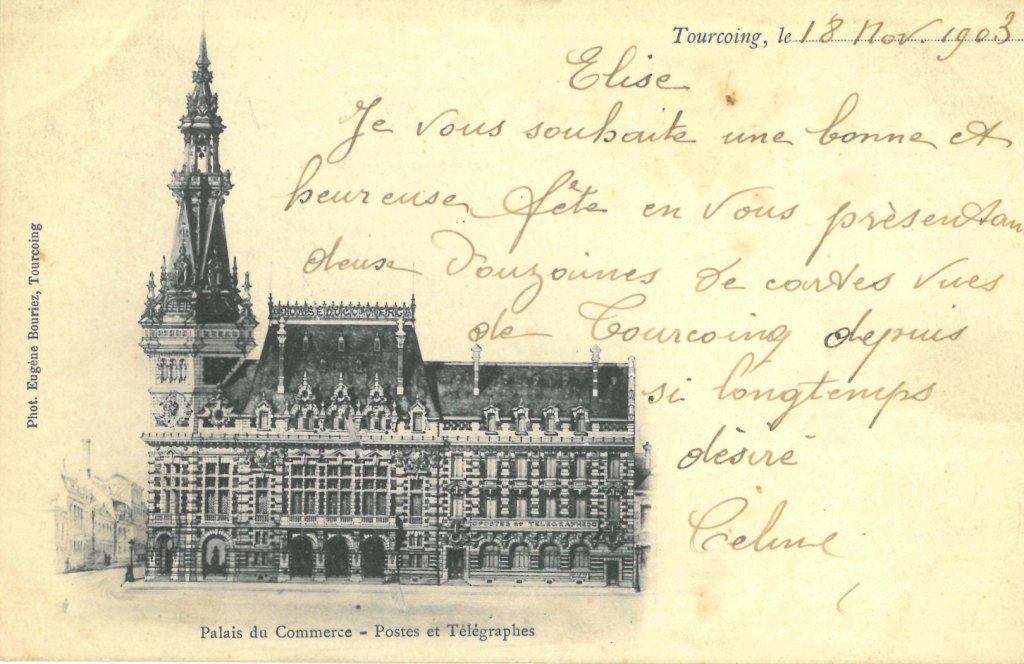 Tourcoing, le 18 Nov. 1903
Elise
Je vous souhaite une bonne et
heureuse fête en vous présentan
deux Douzaines de cartes vues
de Tourcoing depuis
si longtemps
désiré
Céline
Phot. Eugène Bouriez, Tourcoing
POSTES ET TELEGRAPHES
Palais du Commerce - Postes et Télégraphes